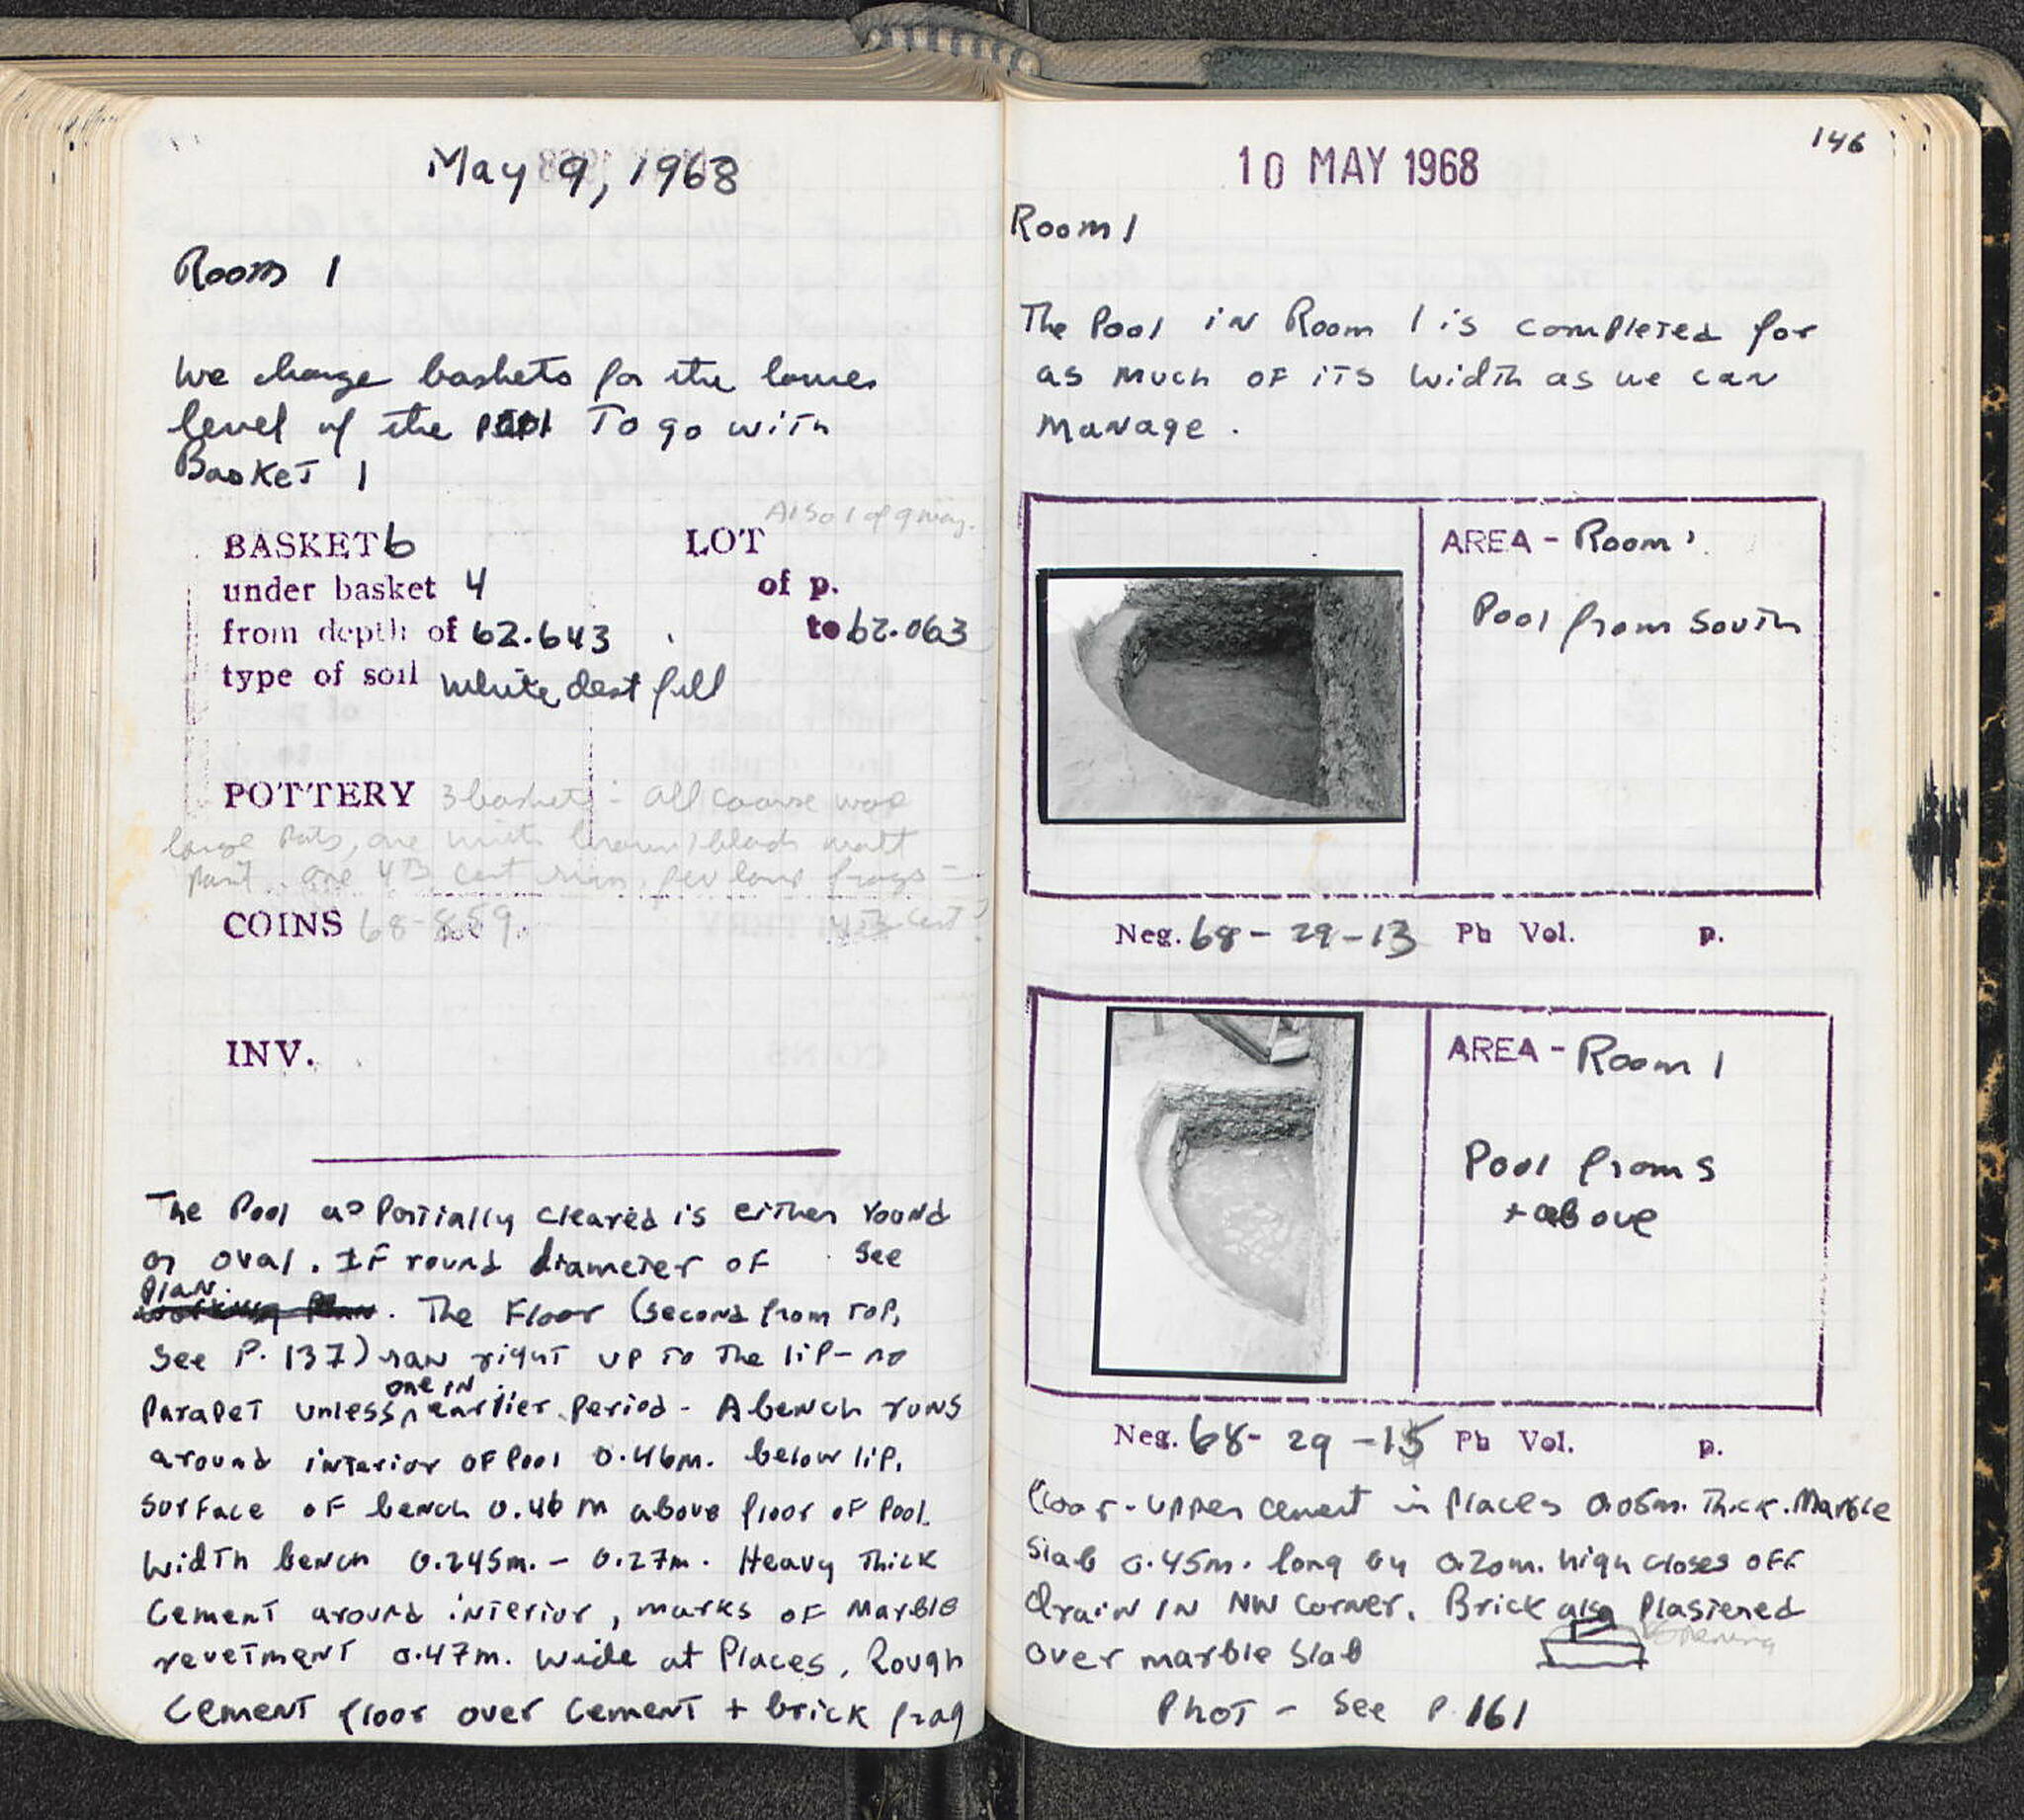 May 9, 1968
Room 1
We change baskets for the lower
level of the pool To go with
Basket 1
Also 1 of 9 may.
BASKET 6 LOT
under basket 4 of p.
from depth of 62.643 to 62.063
type of soil white dest fill
POTTERY 3 baskets - all coarse ware
large pots, one with brown/black matt
paint. one 4th cent rim, few lamp frags -
COINS 68-859. cent?
INV.
The Pool as Partially cleared is either round
or oval. If round diameter of See
Plan.
working Plan. The Floor (second from top,
see P. 137) ran right up to the lip - no
one in
Parapet unless ^ earlier Period - A bench runs
around interior of Pool 0.46m. below lip.
Surface of bench 0.46 m above floor of Pool.
Width bench 0.245m. - 0.27m. Heavy Thick
Cement around interior, marks of Marble
revetment 0.47m. wide at Places. Rough
Cement floor over Cement + brick frag
146
10 MAY 1968
Room 1
The Pool in Room 1 is completed for
as much of its width as we can
manage.
AREA - Room 1
Pool from South
Neg. 68-29-13 Ph Vol. p.
AREA - Room 1
Pool from S
+ above
Neg. 68-29-15 Ph Vol. p.
floor - upper cement in Places 0.05m. Thick. Marble
Slab 0.45m. long by 0.20m. high closes off
drain in NW Corner. Brick also Plastered
opening
over marble slab
Phot - See P. 161